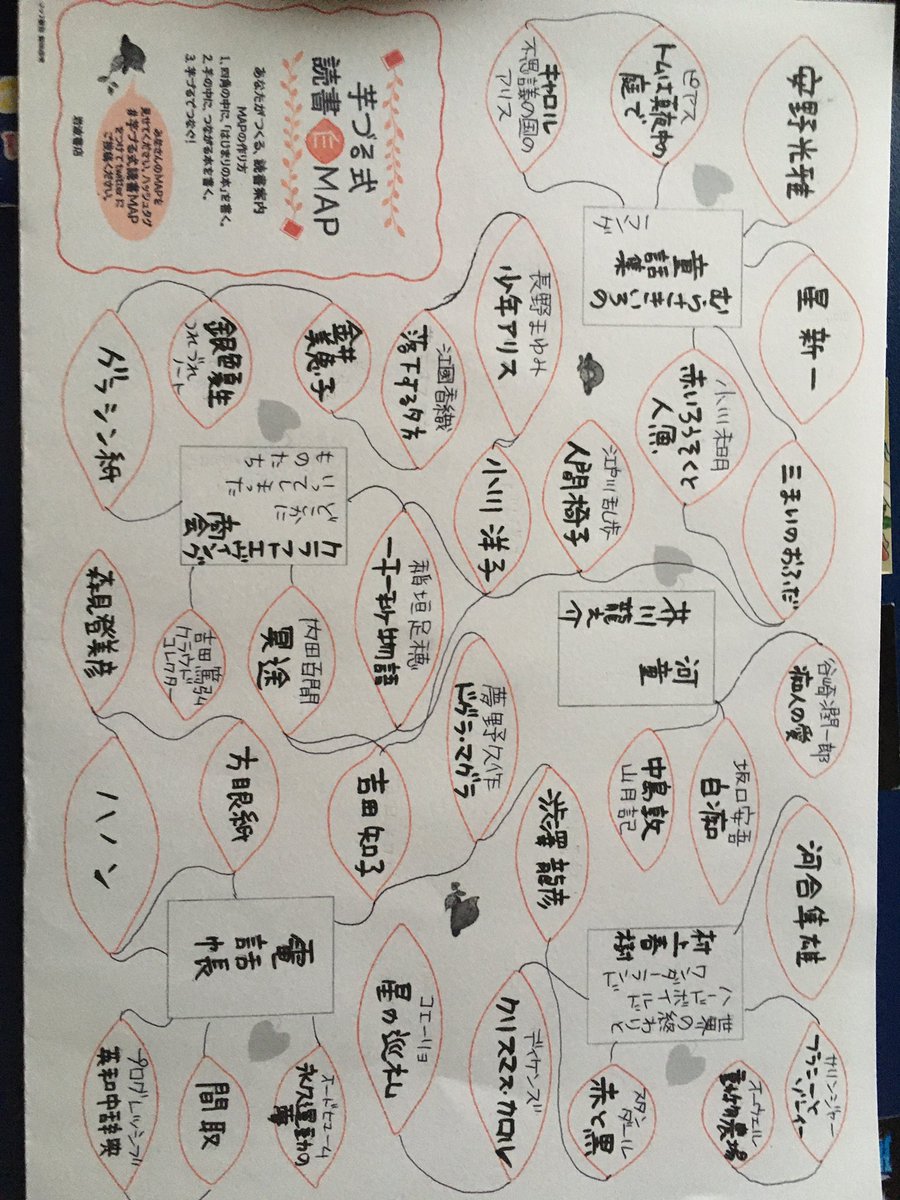 芋づる式
読書MAP
あなたがつくる、読書案内
MAPの作り方
1. 四角の中に、「はじまりの本」を書く。
2. 芋の中に、つながる本を書く。
3. 芋づるでつなぐ!
みなさんのMAPを
見せてください。ハッシュタグ
#芋づる式読書MAP
をつけてtwitterに
ご投稿ください。
岩波書店
安野光雅
ピアス
トムは真夜中の
庭で
キャロル
不思議の国の
アリス
むらさきいろの
童話集
ラング
星新一
三まいのおふだ
小川未明
赤いろうそくと
人魚
長野まゆみ
少年アリス
江國香織
落下する夕方
金井
美恵子
銀色夏生
つれづれ
ノート
グラシン紙
江戸川乱歩
人間椅子
小川洋子
クラフト・エヴィング
商会
どこかに
いってしまった
ものたち
稲垣足穂
一千一秒物語
内田百閒
冥途
吉田篤弘
クラウド
コレクター
森見登美彦
河童
芥川龍之介
谷崎潤一郎
痴人の愛
坂口安吾
白痴
中島敦
山月記
夢野久作
ドグラ・マグラ
吉田知子
方眼紙
ハノン
澁澤龍彦
河合隼雄
村上春樹
世界の終わりと
ハードボイルド
ワンダーランド
電話帳
コエーリョ
星の巡礼
ディケンズ
クリスマス・カロル
スタンダール
赤と黒
オーウェル
動物農場
サリンジャー
フラニーと
ゾーイー
オードヒューム
永久運動の
夢
間取
プログレッシブ
英和中辞典